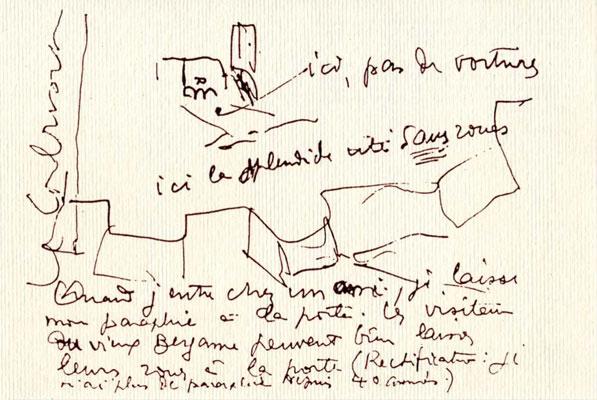 ici, pas de voitures
ici la splendide cité sans roues
Quand j'entre chez un ami, je laisse
mon parapluie à la porte. Les visiteurs
du vieux Bergame peuvent bien laisser
leurs roues à la porte (Rectificatif : je
n'ai plus de parapluie depuis 40 années!)